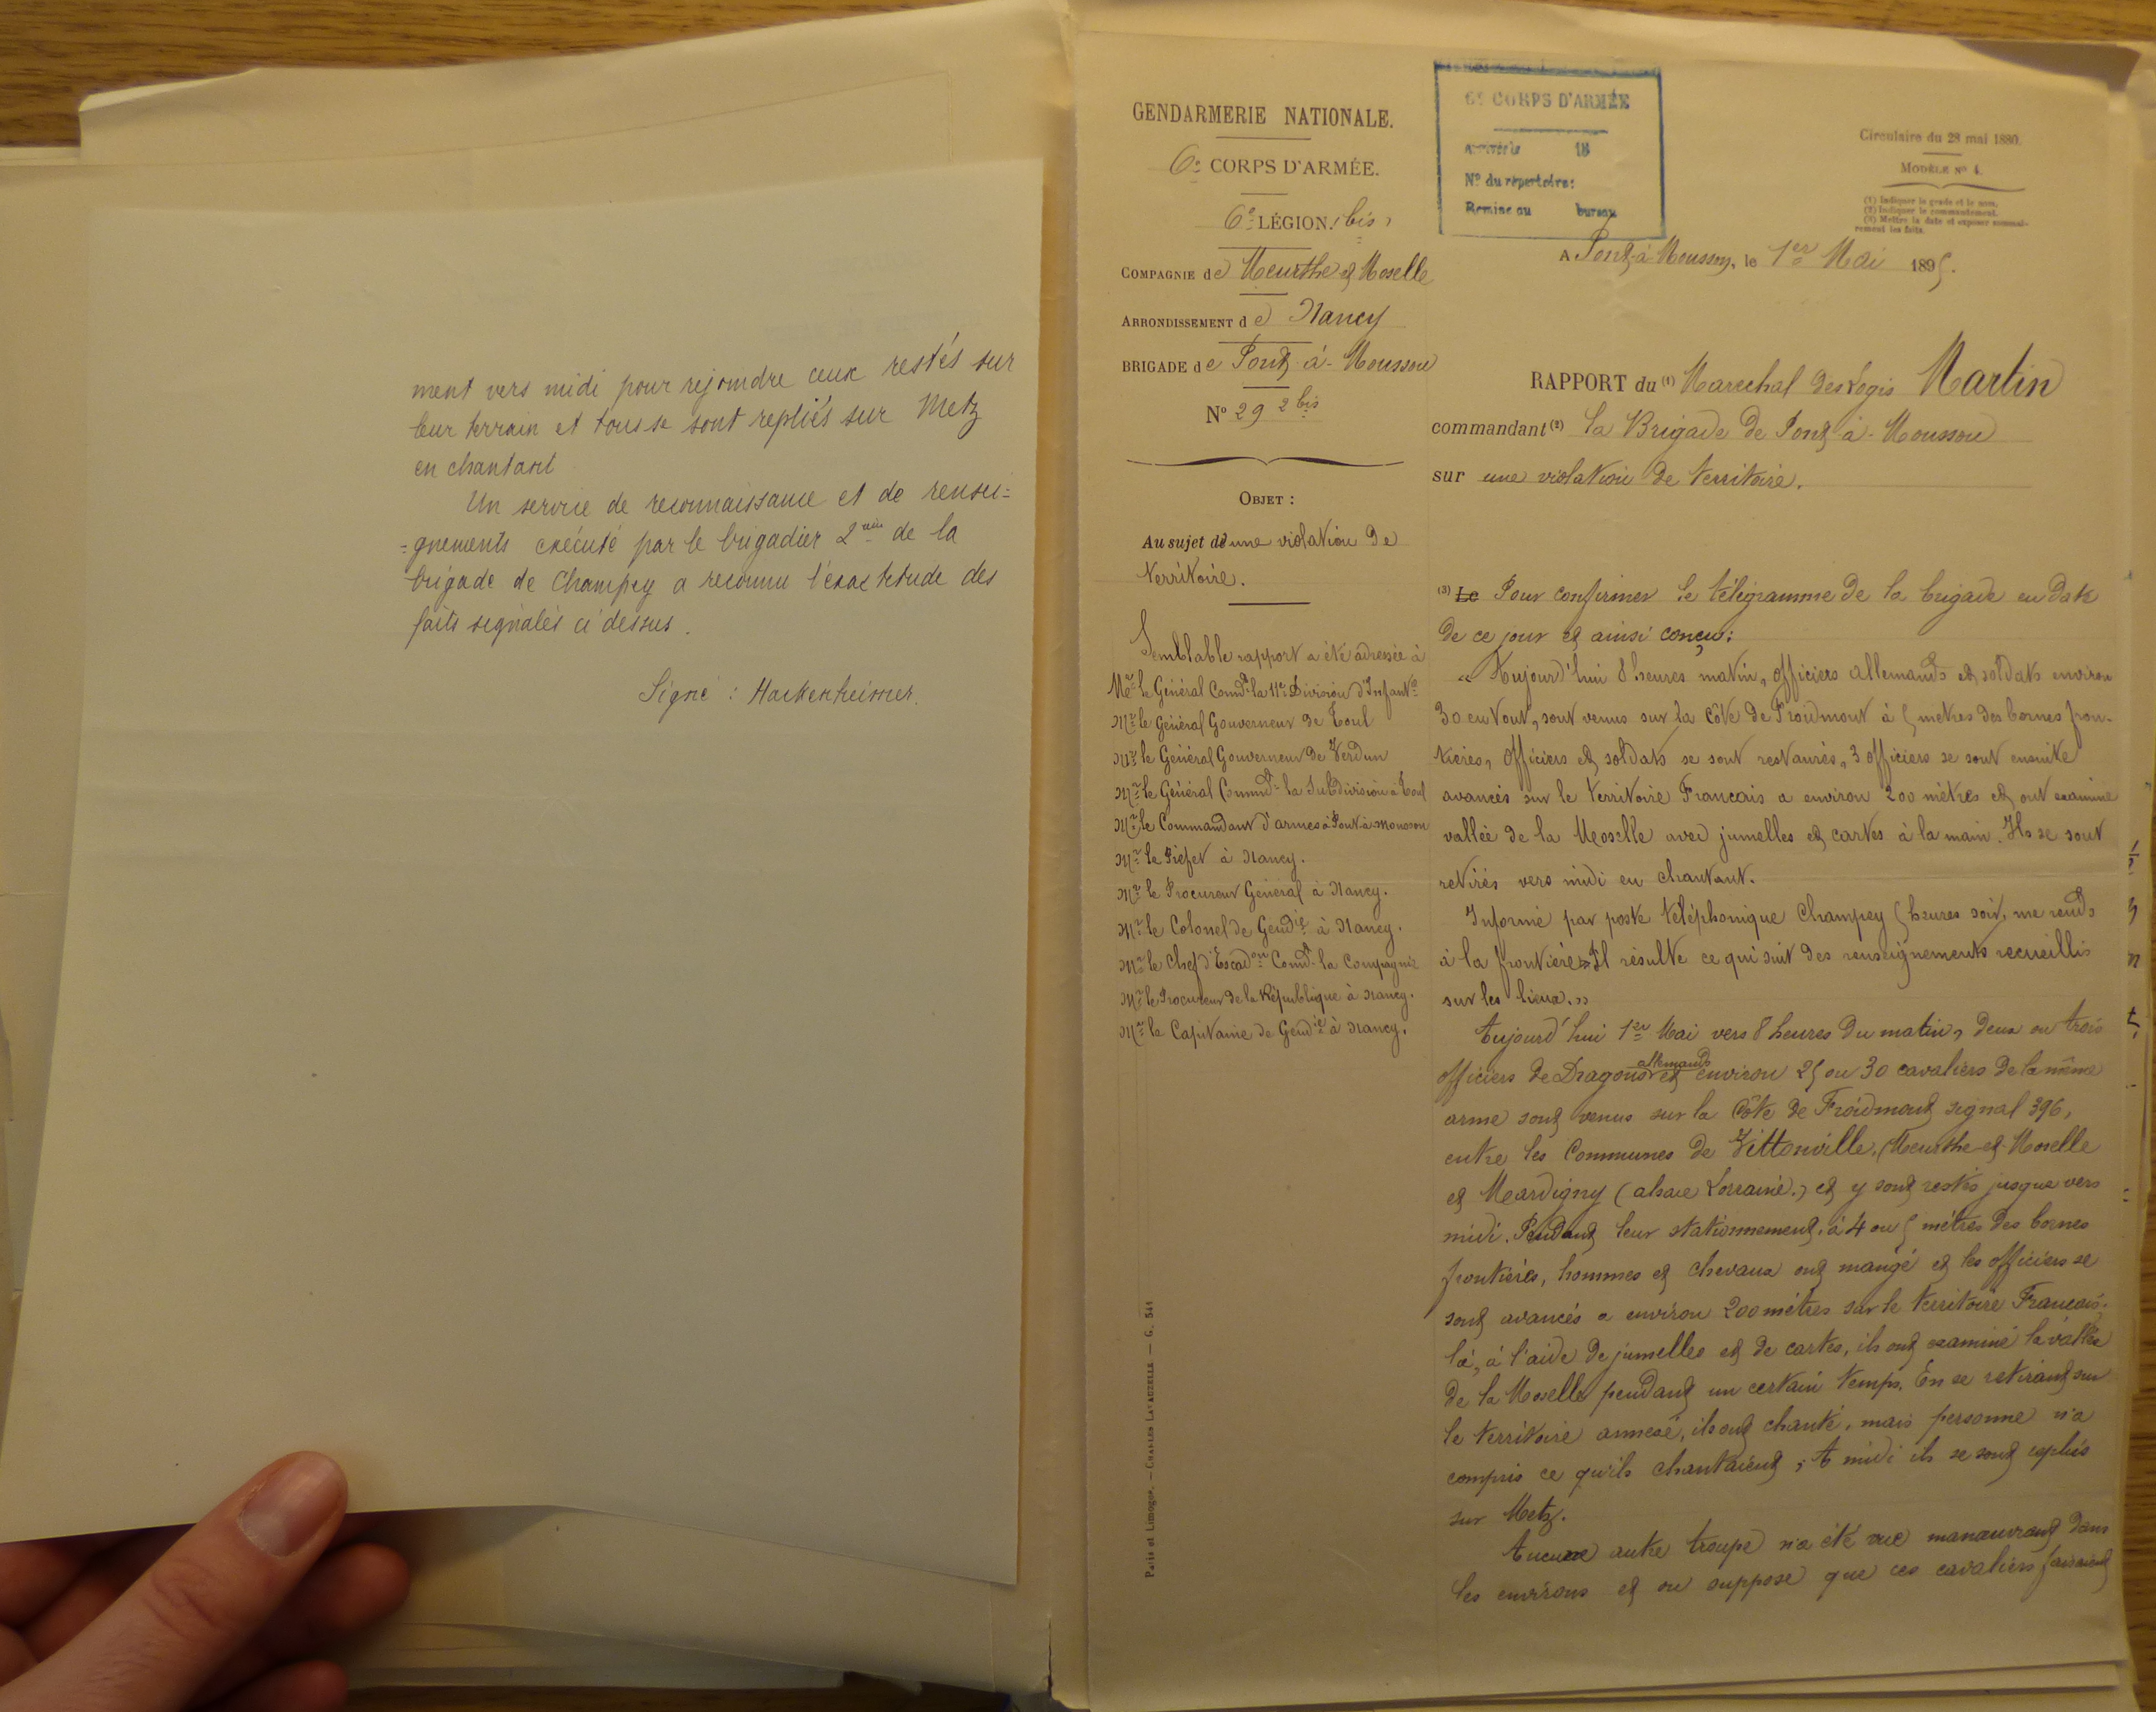 ment vers midi pour rejoindre ceux restés sur
leur terrain et tous se sont repliés sur Metz
en chantant
Un service de reconnaissance et de rensei=
=gnements exécuté par le brigadier 2me de la
brigade de Champey a reconnu l'exactitude des
faits signalés ci dessus.
Signé : Hackenheimer.
GENDARMERIE NATIONALE.
6e CORPS D'ARMÉE.
6e LÉGION (bis)
COMPAGNIE de Meurthe et Moselle
ARRONDISSEMENT de Nancy
BRIGADE de Pont-à-Mousson
No 29 2 bis
OBJET :
Au sujet d'une violation de
territoire.
Semblable rapport a été adressé à
Mr le Général Comdt la 11e Division d'Infantie
Mr le Général Gouverneur de Toul
Mr le Général Gouverneur de Verdun
Mr le Général Commdt la Subdivision à Toul
Mr le Commandant d'armes à Pont-à-Mousson
Mr le Préfet à Nancy.
Mr le Procureur Général à Nancy.
Mr le Colonel de Gendie à Nancy.
Mr le Chef d'Escadon Comdt la Compagnie
Mr le Procureur de la République à Nancy.
Mr le Capitaine de Gendie à Nancy.
Paris et Limoges. — CHARLES LAVAUZELLE — G. 544
6e CORPS D'ARMÉE
Arrivée le 18
No du répertoire:
Remise au bureau
Circulaire du 28 mai 1880.
MODÈLE No 4.
(1) Indiquer le grade et le nom.
(2) Indiquer le commandement.
(3) Mettre la date et exposer sommai-
rement les faits.
A Pont-à-Mousson, le 1er Mai 1895.
RAPPORT du (1) Marechal des Logis Martin
commandant (2) la Brigade de Pont-à-Mousson
sur une violation de territoire.
(3) Le Pour confirmer le télégramme de la brigade en date
de ce jour et ainsi conçu:
« Aujourd'hui 8 heures matin, officiers allemands et soldats environ
30 en tout, sont venus sur la côte de Froidmont à 5 mètres des bornes fron-
tières, officiers et soldats se sont restaurés, 3 officiers se sont ensuite
avancés sur le territoire Français a environ 200 mètres et ont examiné
vallée de la Moselle avec jumelles et cartes à la main. Ils se sont
retirés vers midi en chantant.
Informé par poste téléphonique Champey 5 heures soir, me rends
à la frontière» Il résulte ce qui suit des renseignements recueillis
sur les lieux.»
Aujourd'hui 1er Mai vers 8 heures du matin, deux ou trois
officiers de Dragons allemands et environ 25 ou 30 cavaliers de la même
arme sont venus sur la Côte de Froidmont signal 396,
entre les Communes de Vittonville, (Meurthe-et-Moselle
et Mardigny (alsace Lorraine.) et y sont restés jusque vers
midi. Pendant leur stationnement, à 4 ou 5 mètres des bornes
frontières, hommes et chevaux ont mangé et les officiers se
sont avancés a environ 200 mètres sur le territoire Français;
là, à l'aide de jumelles et de cartes, ils ont examiné la vallée
de la Moselle pendant un certain temps. En se retirant sur
le territoire annexé, ils ont chanté, mais personne n'a
compris ce qu'ils chantaient; A midi ils se sont repliés
sur Metz.
Aucune autre troupe n'a été vue manœuvrant dans
les environs et on suppose que ces cavaliers faisaient